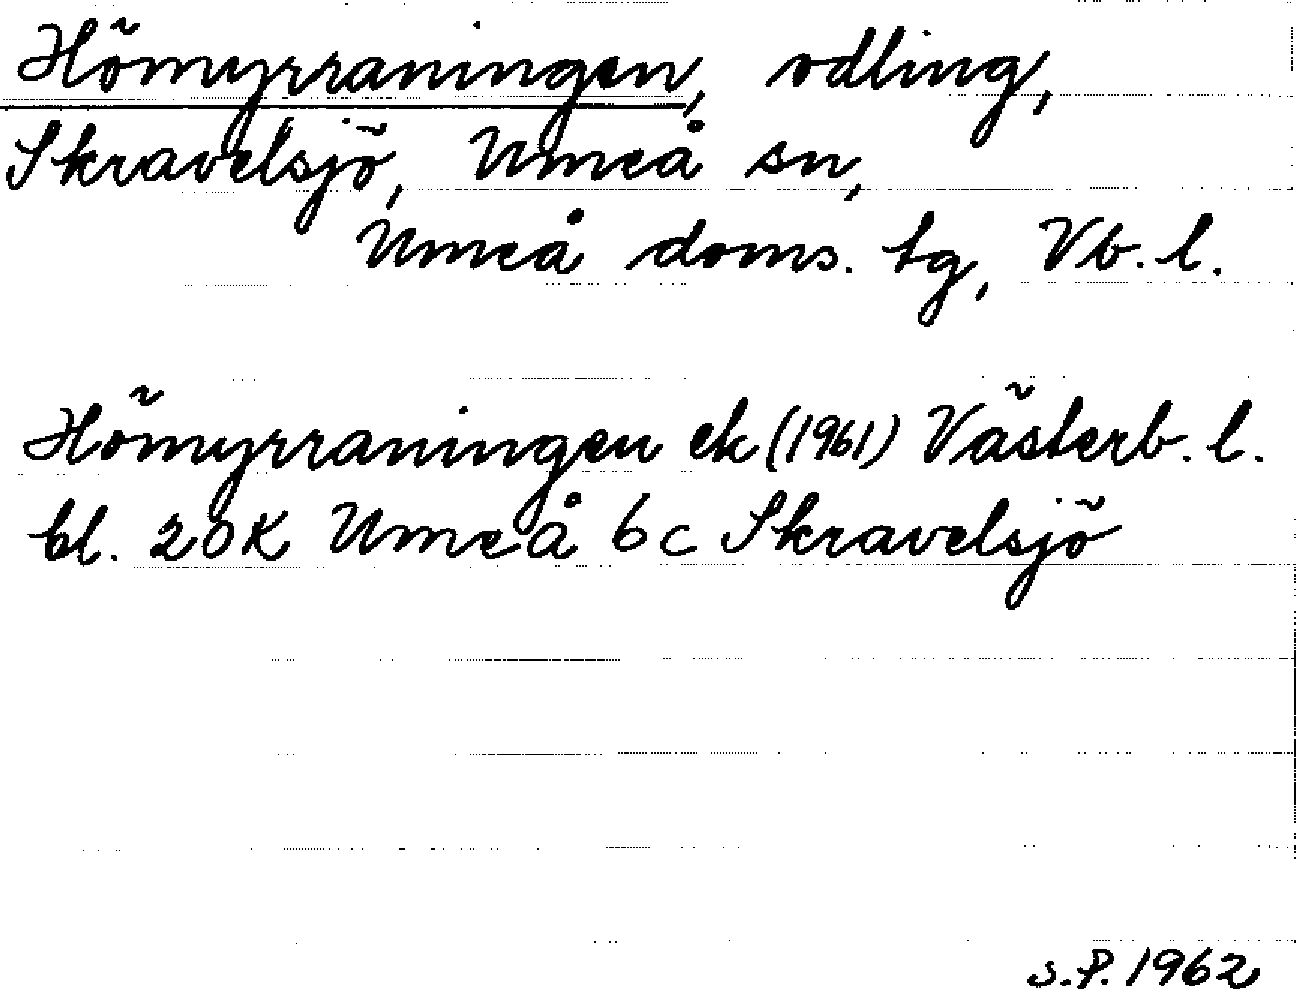 Hömyrraningen, odling,
Skravelsjö, Umeå sn,
Umeå doms. tg, Vb. l.
Hömyrraningen ek (1961) Västerb. l.
bl. 20K Umeå 6c Skravelsjö
s.P. 1962